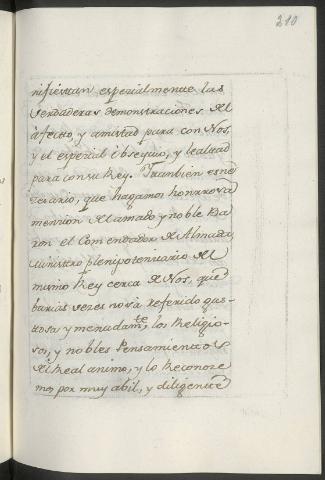 210
nifiestan espezialmente las
verdaderas demonstraciones del
afecto, y amistad para con Nos,
y el espezial obsequio, y lealtad
para con su Rey. Tambien es ne-
cesario, que hagamos honrrosa
mencion del amado y noble Ba-
ron el Comendador de Almada,
Ministro plenipotenciario del
mismo Rey cerca de Nos, que
barias veses nos à referido gus-
tosa y menudamte los Religio-
sos, y nobles Pensamientos
del Real animo, y lo Reconore-
mos por muy abil, y diligente